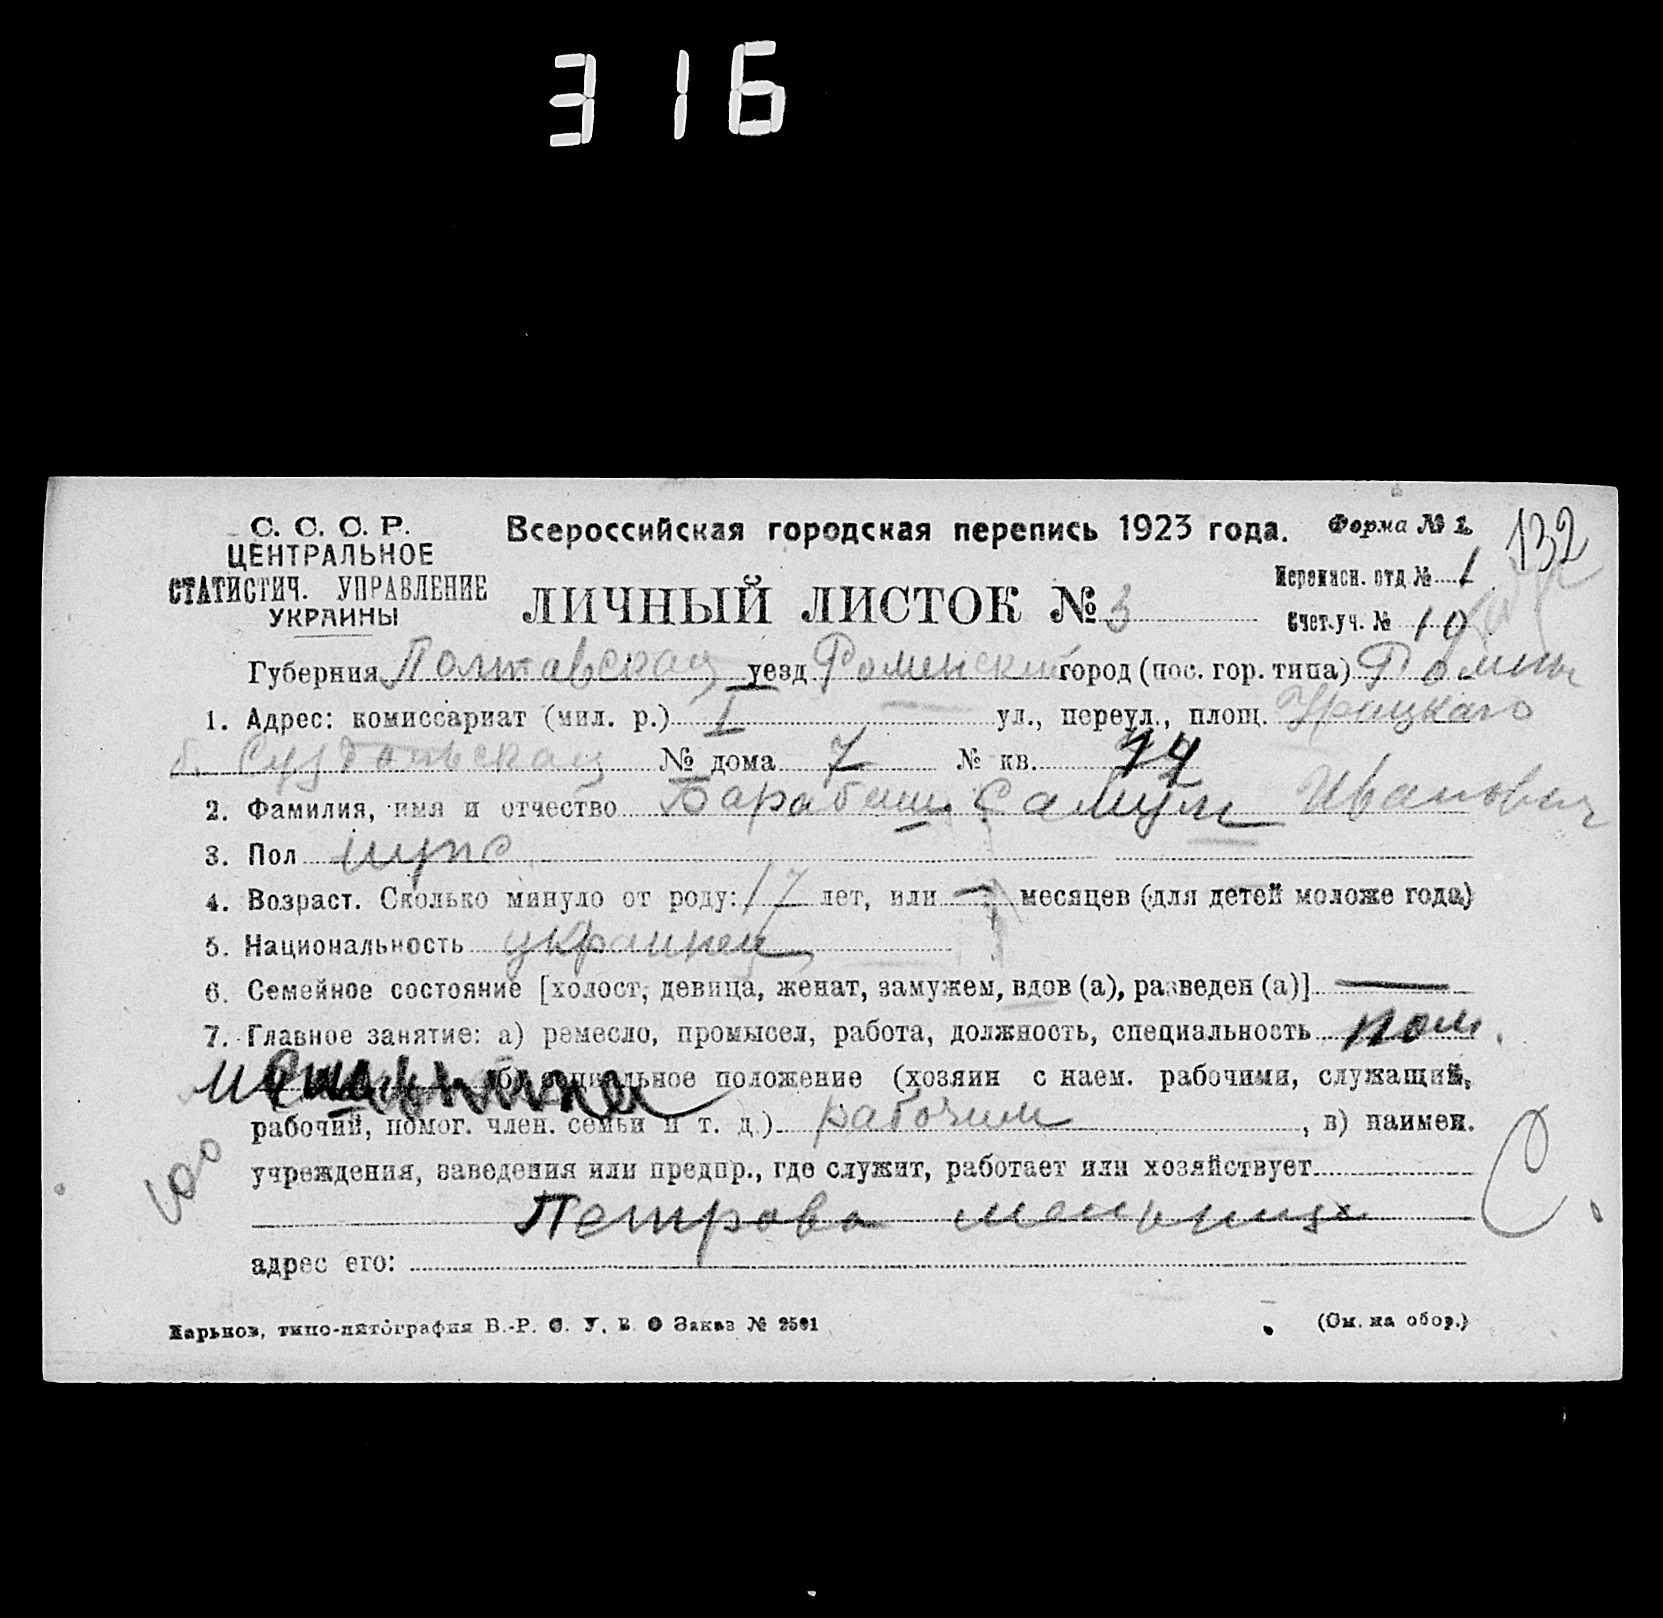 316
С. С. С. Р.
ЦЕНТРАЛЬНОЕ
СТАТИСТИЧ. УПРАВЛЕНИЕ
УКРАИНЫ
Всероссийская городская перепись 1923 года.
Форма № 1
132
ЛИЧНЫЙ ЛИСТОК № 3
Переписн. отд № 1
Счет. уч. № 10
Губерния Полтавская уезд Роменский город (пос. гор. типа) Ромны
1. Адрес: комиссариат (мил. р.) I ул., переул., площ. Урицкаго
б. Суздальская № дома 7 № кв. 14
2. Фамилия, имя и отчество Барабаш Самуил Иванович
3. Пол муж
4. Возраст. Сколько минуло от роду: 17 лет, или — месяцев (для детей моложе года)
5. Национальность украинец
6. Семейное состояние [холост, девица, женат, замужем, вдов (а), разведен (а)] —
7. Главное занятие: а) ремесло, промысел, работа, должность, специальность пом.
мельника б) социальное положение (хозяин с наем. рабочими, служащий,
рабочий, помог. член. семьи и т. д.) рабочим, в) наимен.
учреждения, заведения или предпр., где служит, работает или хозяйствует
Петрова мельница
адрес его:
Харьков, типо-литография В.-Р. С. У. В. О Заказ № 2591
(См. на обор.)